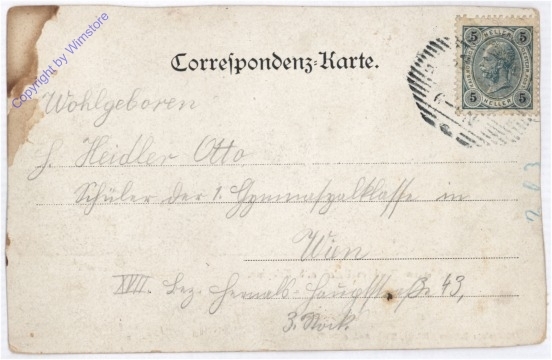 Copyright by Wimstore
Correspondenz-Karte.
5 HELLER 5
5 HELLER 5
Wohlgeboren
H. Heidler Otto
Schüler der 1. Gymnasyalklasse in
Wien
XVII. Bez. Hernals-Hauptstraße 43,
3. Stock.